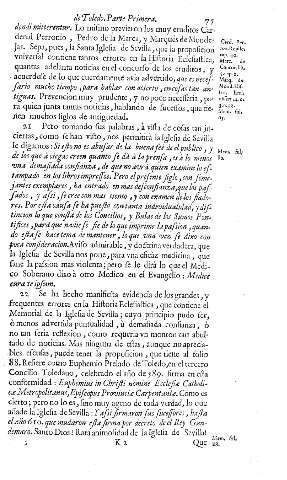 de Toledo. Parte Primera. 75
dendi mitterentur. Lo mismo previenen los muy eruditos Car-
denal Petronio, Pedro de la Marca, y Marquès de Monde-
jar. Sepa, pues, la Santa Iglesia de Sevilla, que la proposicion
vniversal contiene tantos errores en la Historia Eclesiastica,
quantas adelanta noticias en el concurso de los eruditos, y
acuerdese de lo que cuerdamente avia advertido, que es neces-
sario mucho tiempo, para hablar con acierto, en cosas tan an-
tiguas. Prevencion muy prudente, y no poco necessaria, pa-
ra quien junta tantas noticias, hablando de sucessos, que tie-
nen muchos siglos de antiguedad.
21 Pero tomando sus palabras, à vista de cosas tan in-
ciertas, como se han visto, nos permitirà la Iglesia de Sevilla
le digamos: Si esto no es abusar de la buena feè de el publico, y
de los que à ciegas creen quanto se dà à la prensa, es à lo menos
una demasiada confianza, de que no avrà quien examine lo es-
tampado en los libros impressos. Pero el presente siglo, con seme-
jantes exemplares, ha entrado en mas desconfianza, que los pas-
sados, y assi, se cree con mas tiento, y con examen de los funda-
res. Por esta causa se ha puesto constante individualidad, y dis-
tincion lo que consta de los Concilios, y Bulas de los Sumos Pon-
tifices, para que nadie se fie de lo que imprime la passion, quan-
do esta se hace tema de mantener, lo que una vez se dixo con
poca consideracion. Aviso admirable, y doctrina verdadera, que
la Iglesia de Sevilla nos pone, para vna eficàz medicina, que
sane la passion mas violenta; pero se le dirà lo que el Medi-
co Soberano dixo à otro Medico en el Evangelio: Medice
cura te ipsum.
22 Se ha hecho manifiesta evidencia de los grandes, y
frequentes errores en la Historia Eclesiastica, que contiene el
Memorial de la Iglesia de Sevilla; cuyo principio pudo ser,
ò menos advertida puntualidad, ù demasiada confianza, ò
no tan seria reflexion, como requeria vn monton tan abul-
tado de noticias. Mas ninguno de estas, aunque no aprecia-
bles escusas, puede tener la proposicion, que tiene al folio
88. Refiere como Euphemio Prelado de Toledo, en el tercero
Concilio Toledano, celebrado el año de 589. firmò en esta
conformidad: Euphemius in Christi nomine Ecclesiæ Catholi-
cæ Metropolitanus, Episcopus Provinciæ Carpentaniæ. Como es
cierto; pero no lo es, sino muy ageno de toda verdad, lo que
añade la Iglesia de Sevilla: Y assi firmaron sus sucessores, hasta
el año 610. que mudaron esta firma por decreto de el Rey Gun-
demaro. Santo Dios! Rara animosidad de la Iglesia de Sevilla!
K 2 Que
Mem. fol.
82.
Mem. fol.
88.